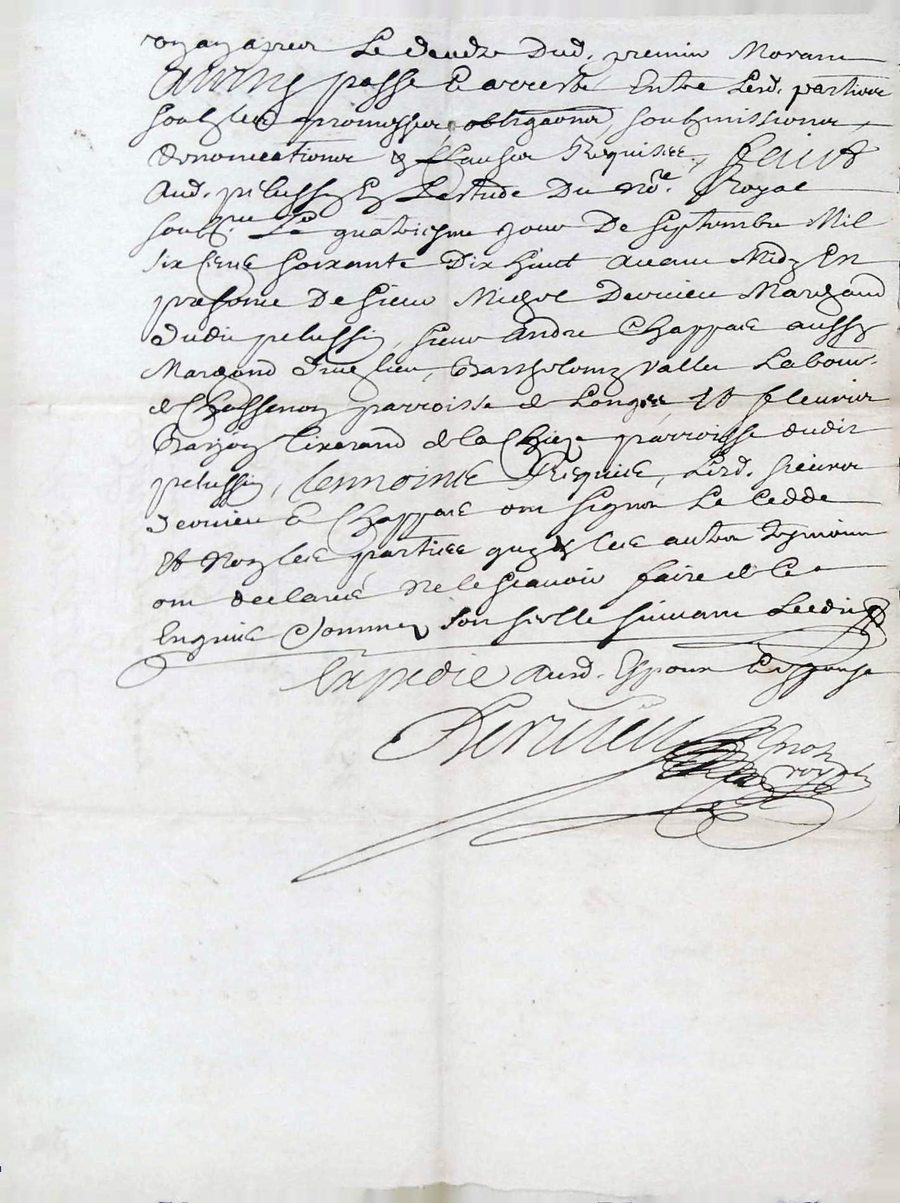 Le dud. premier
Ainsy passe & arresté Entre lesd. parties
soubz les promesses obligaons, soubzmissions,
renonciations & clauses Requises, Faict
Aud. pelussy En Lestude Du No.re Royal
soub.né Le quatriesme jour De Septembre Mil
six cens soixante Dix huict avant Midy En
presence De sieur Michel Dervieu Marchand
dudit pelussin, sieur Andre Chappas aussy
Marchand dud lieu, Bartholomy Vallet Labour.
de Chassenoy parroisse de Longes & fleurie
tixerand de la parroisse dudit
pelussin, tesmoins Requis, Lesd. sieurs
Dervieu & Chappas ont signer La cedde
& Non les parties quy & les autres tesmoins
ont declaré Ne le scavoir faire de Ce
Enquis & sommes son scelle suivant Leedit
Expedié Ausd. Espoux
Dervieu No.re royal